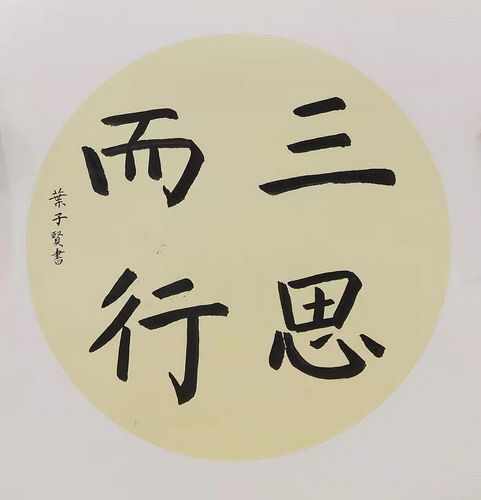 三思
而行
葉子賢書